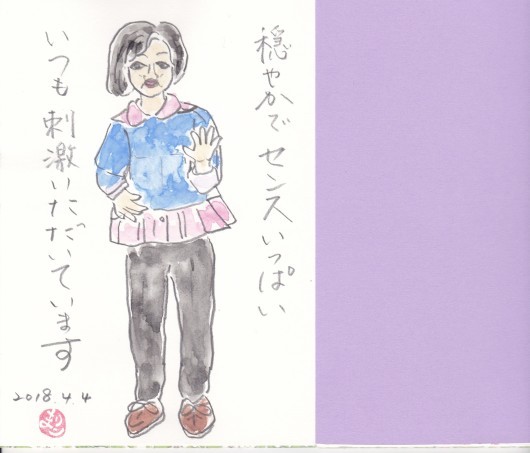 穏やかで センスいっぱい
いつも 刺激いただいています
2018.4.4